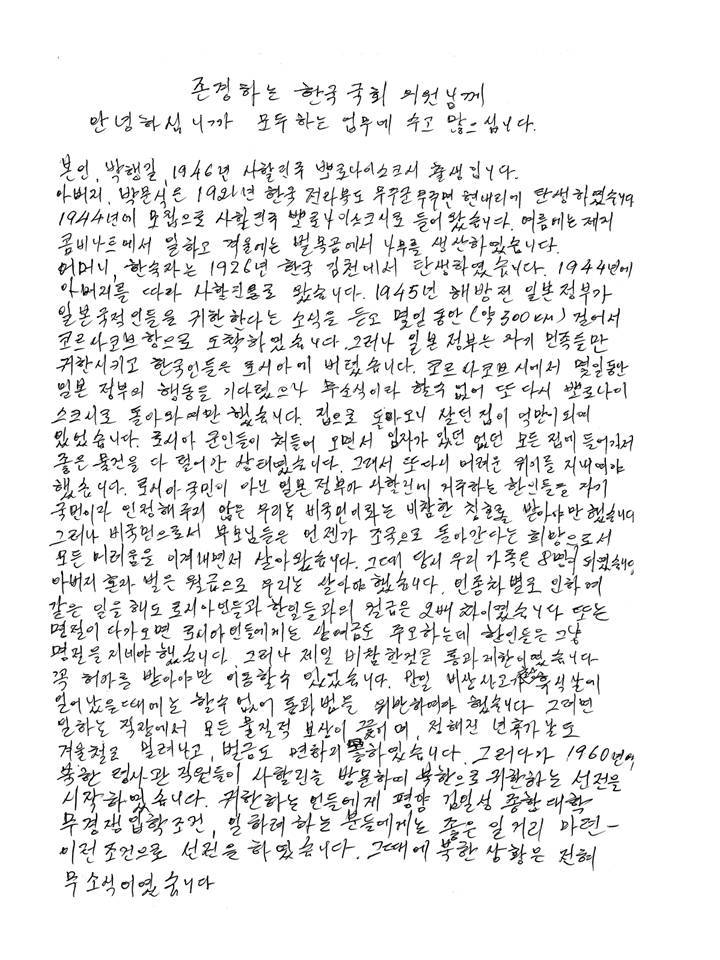 존경하는 한국국회 의원님께
안녕하십니까 모두하는 업무에 수고 많으십니다.
본인, 박행길, 1946년 사할린주 뽀로나이스크시 출생입니다.
아버지, 박문식은 1921년 한국 전라북도 무주군 무주면 현내리에 탄생하였습니다
1944년에 모집으로 사할린주 뽀로나이스크시로 들어왔습니다. 여름에는 제지
콤비나트에서 일하고 겨울에는 벌목공에서 나무를 생산하였습니다.
어머니, 한숙자는 1926년 한국 김천에서 탄생하였습니다. 1944년에
아버지를 따라 사할린으로 왔습니다. 1945년 해방전 일본정부가
일본국적인들을 귀한하다는 소식을 듣고 몇일 동안 (약 300km) 걸어서
코르사코브항으로 도착하였습니다. 그러나 일본 정부는 자기 민족들만
귀한시키고 한국인들은 로시아에 버렸습니다. 코르사코브시에서 몇일동안
일본 정부의 행동을 기다렸으나 무소식이라 할수없어 또 다시 뽀로나이
스크시로 돌아와야만 했습니다. 집으로 돌아오니 살던 집이 엉만이 되여
있었습니다. 로시아 군인들이 쳐들어 오면서 임자가 있던 없던 모든 집에 들어가서
좋은 물건을 다 털어간 상태였습니다. 그래서 또다시 어려운 위기를 지내여야
했습니다. 로시아국민이 아닌 일본정부가 사할린에 거주하는 한인들을 자기
국민이라 인정해주지 않은 우리는 비국민이라는 비참한 칭호를 받아야만 했습니다
그러나 비국민으로서 부모님들은 언젠가 조국으로 돌아간다는 희망으로서
모든 어려움을 이겨내면서 살아왔습니다. 그때 당시 우리 가족은 8명이 되였습니다
아버지 혼자 벌은 월급으로 우리는 살아야 했습니다. 인종차별로 인하여
같은 일을 해도 로시아인들과 한인들과의 월급은 2배 차이였습니다 또는
명절이 다가오면 로시아인들에게는 상여금도 주오하는데 한인들은 그냥
명절을 지내야 했습니다. 그러나 제일 비참한것은 통과 제한이였습니다
꼭 허가를 받아야만 이동할수 있었습니다. 만일 비상사고가 휴식날에
일어났을때에는 할수없어 통과법을 위반하여야 했습니다 그러면
일하는 직장에서 모든 물질적 보상이 끊기며, 정해진 년휴가날도
겨울철로 밀려나고, 벌금도 면하지 못하였습니다. 그러다가 1960년에
북한 영사관 직원들이 사할린을 방문하여 북한으로 귀환하는 선전을
시작하였습니다. 귀한하는 인들에게 평양 김일성 종합대학
무경쟁입학조건, 일하려 하는 분들에게는 좋은 일거리 마련–
이런 조건으로 선전을 하였습니다. 그때에 북한 상황은 전혀
무소식이였습니다